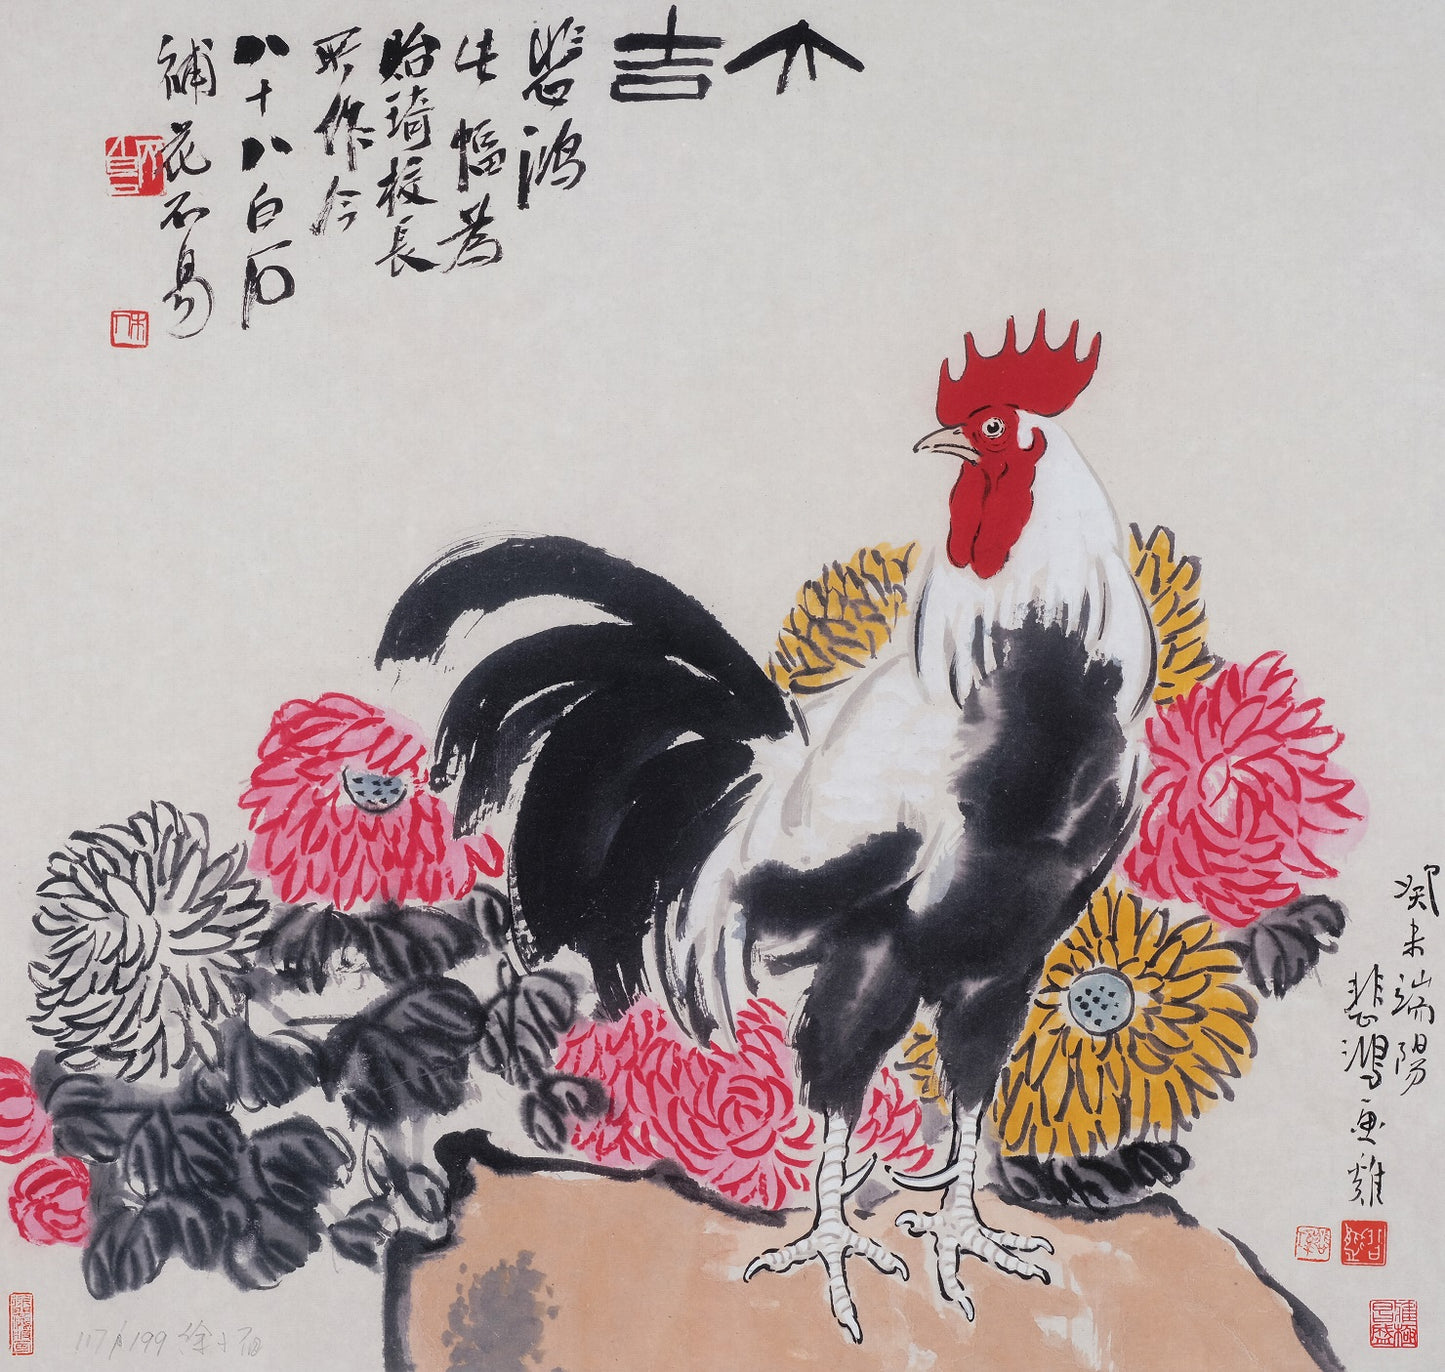 大吉
悲鴻
此幅為
貽琦校長
所作今
八十八白石
補花不易
癸未端陽
悲鴻畫雞
117/199 徐小石